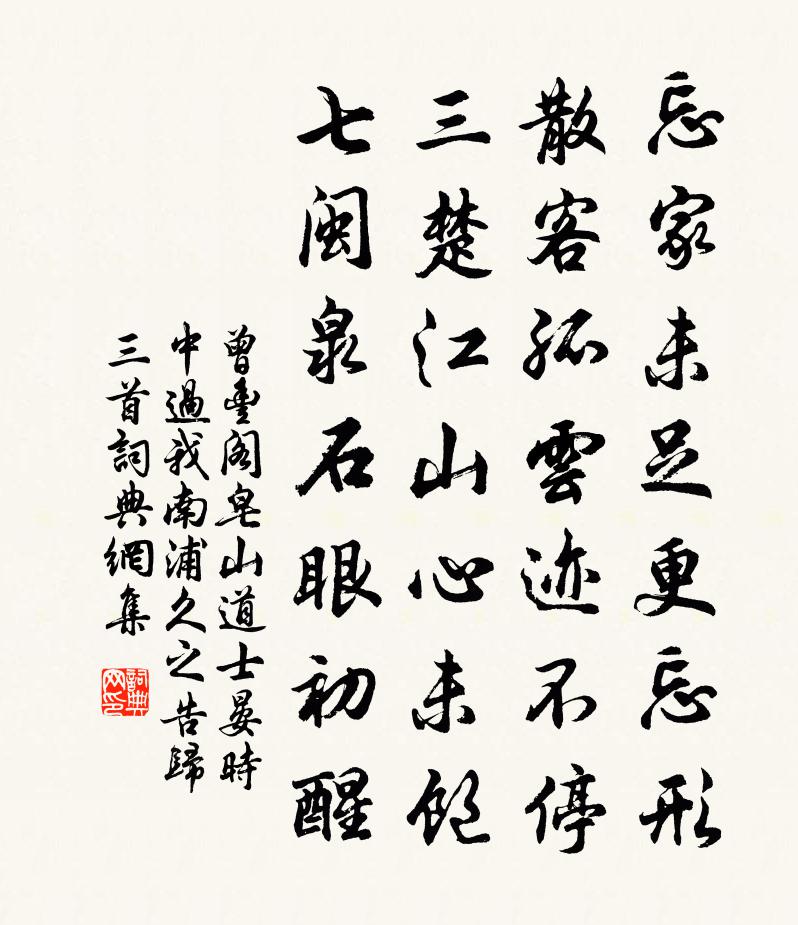 忘家未足更忘形
散客孤雲迹不停
三楚江山心未飽
七閩泉石眼初醒
曾豐閣皂山道士晏時
中過我南浦久之告歸
三首詞典網集
詞典网印